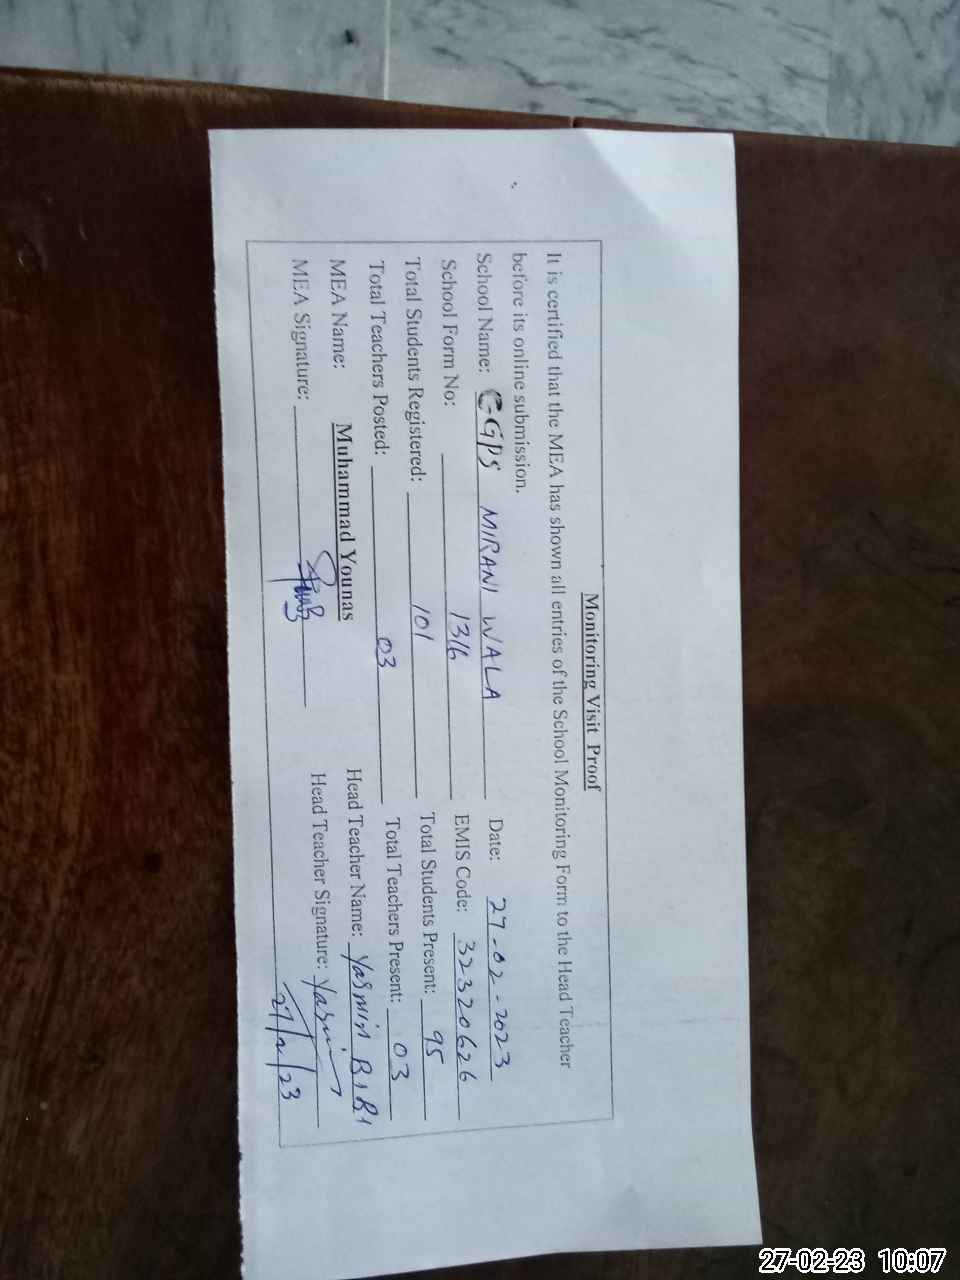 Monitoring Visit Proof
It is certified that the MEA has shown all entries of the School Monitoring Form to the Head Teacher
before its online submission.
School Name: GGPS MIRANI WALA Date: 27-02-2023
School Form No: 1316 EMIS Code: 32320626
Total Students Registered: 101 Total Students Present: 95
Total Teachers Posted: 03 Total Teachers Present: 03
MEA Name: Muhammad Younas Head Teacher Name: Yasmin BiBi
MEA Signature: Head Teacher Signature: Yasmin
27/2/23
27-02-23 10:07